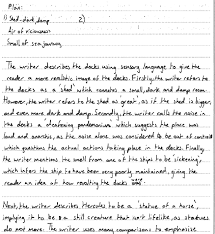 Plan:
1) Shed - dark, damp 2)
Air of viciousness
Smell of sea journey
The writer describes the docks using sensory language to give the
reader a more realistic image of the docks. Firstly, the writer refers to
the docks as a 'shed' which connotes a small, dark and damp room.
However, the writer refers to the shed as great, as if the shed is bigger,
and even more dark and damp. Secondly, the writer calls the noise in
the docks a 'deafening pandemonium' which suggests the place was
loud and anarchic, as the noise alone was considered to be out of control
which questions the actual actions taking place in the docks. Finally
the writer mentions the smell from one of the ships to be sickening,
which infers the ship to have been very poorly maintained, giving the
reader an idea of how revolting the docks
Next, the writer describes Hercules to be a 'statue of a horse',
implying it to be a still creature that isn't lifelike, as statues
do not move. The writer uses many comparisons to emphasise